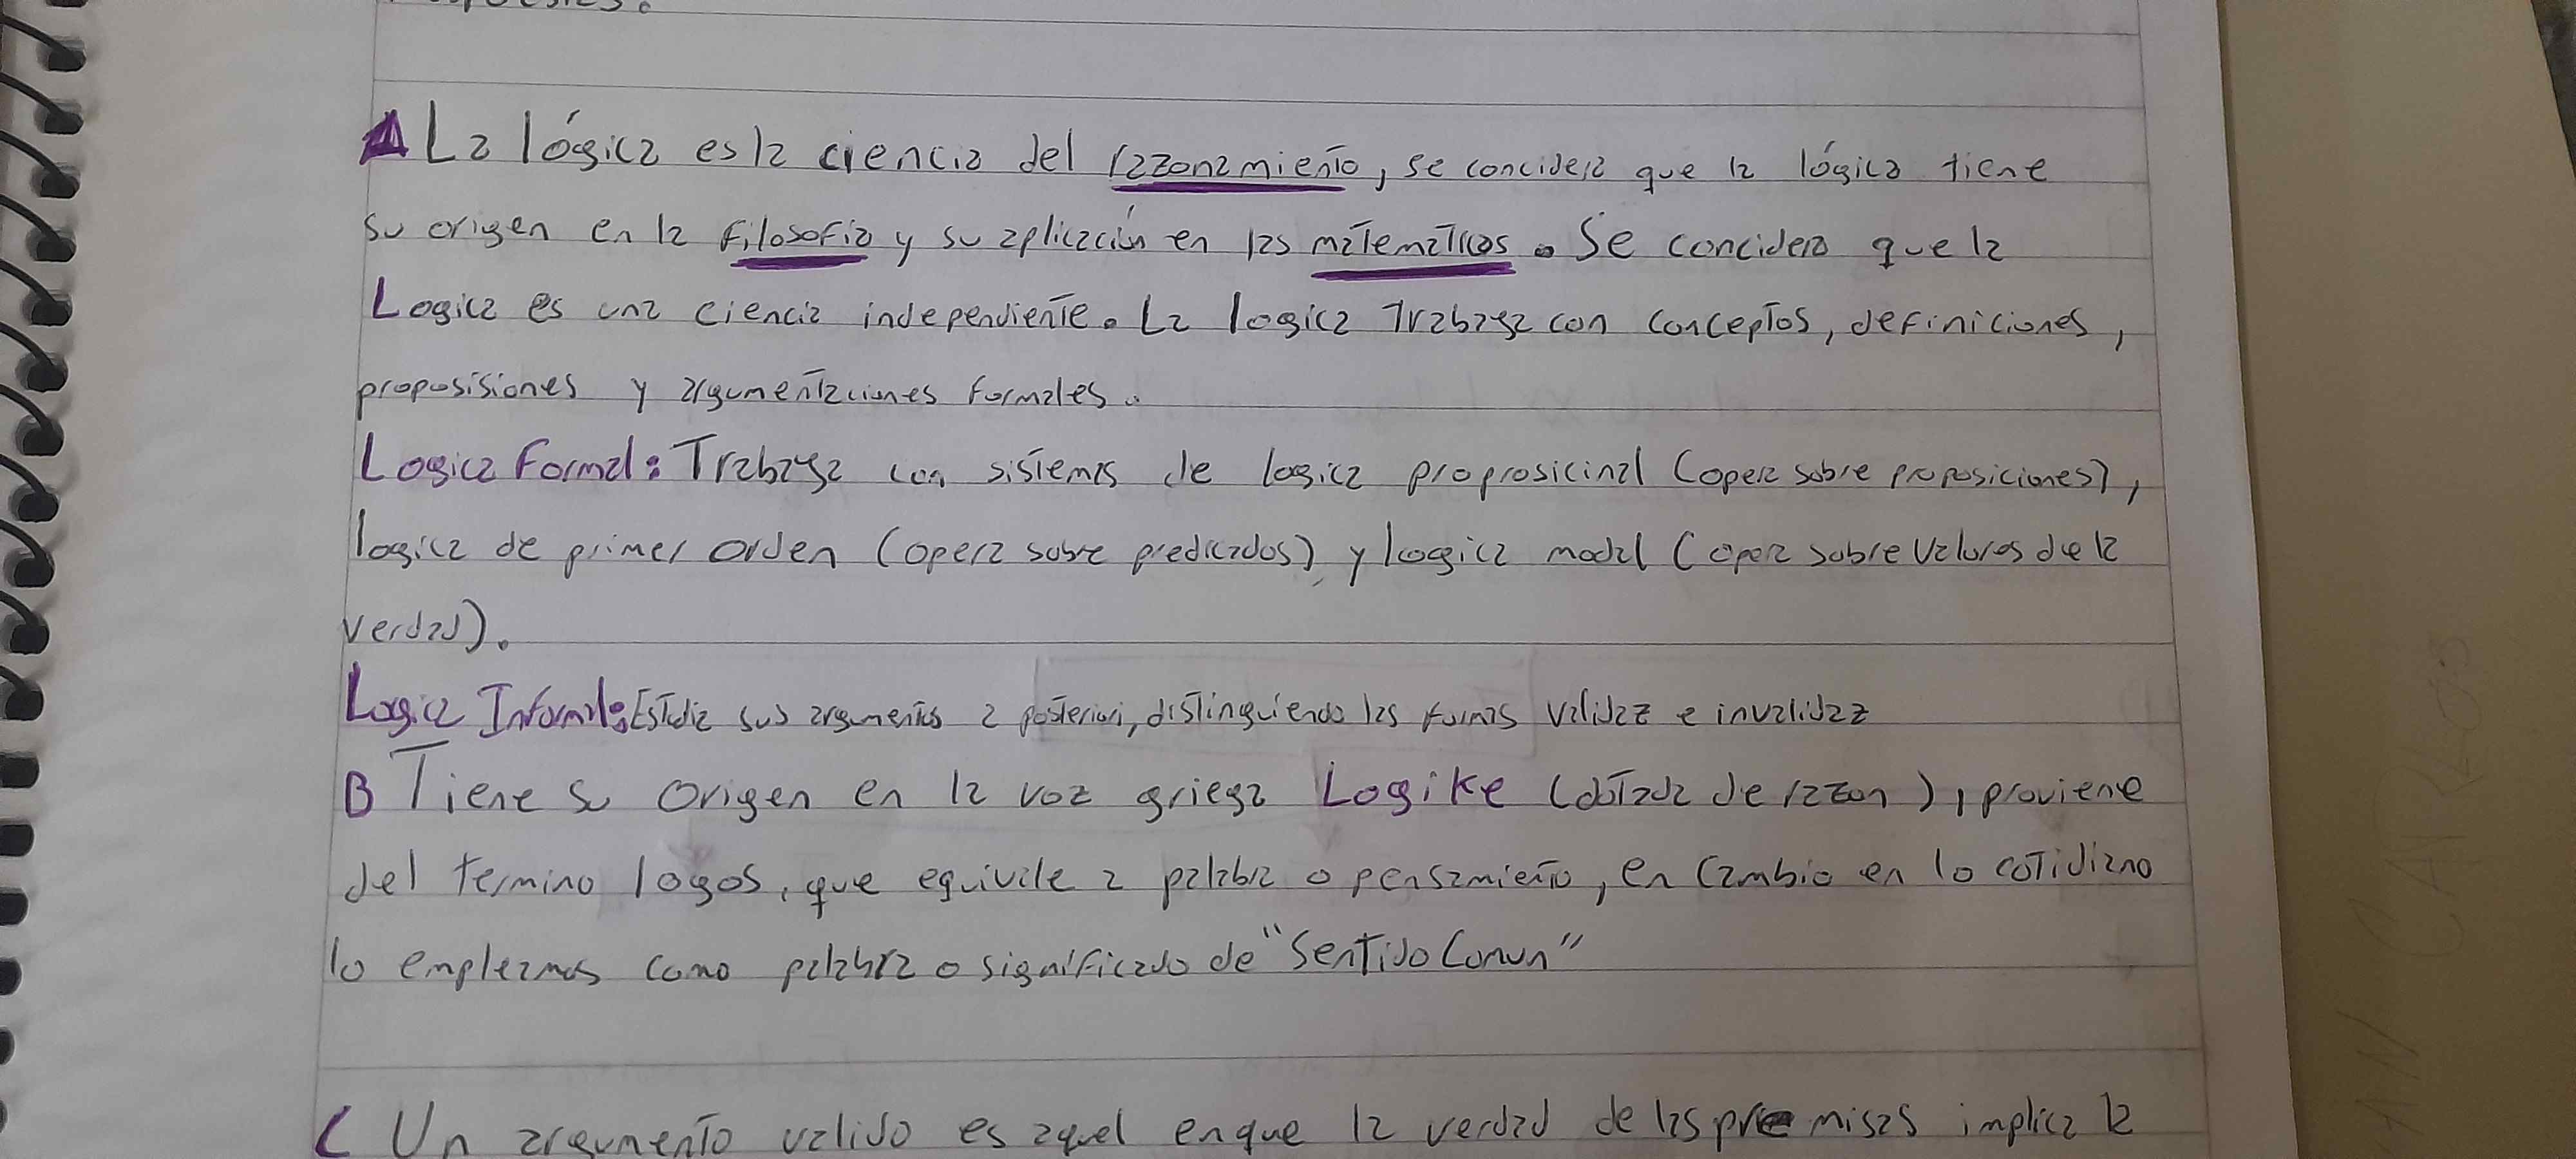 A La lógica es la ciencia del razzonamiento, se concidera que la lógica tiene
su origen en la filosofia y su aplicación en las matematicas. Se concidera que la
Logica es una ciencia independiente. La logica Trabaga con conceptos, definiciones,
proposisiones y argumentaciones formales.
Logica Formal: Trabaga con sistemas de logica proprosicinal (opera sobre proposiciones),
logica de primer orden (opera sobre predicados) y logica modal (opera sobre valores de la
verdad).
Logica Informal: Estudia sus argumentos a posteriori, distinguiendo las formas validaz e invalidaz
B Tiene su origen en la voz griega Logike (dotada de razon), proviene
del termino logos, que equivale a palabra o pensamiento, en cambio en lo cotidiano
lo empleamos como palabra o significado de "Sentido Comun"
C Un argumento valido es aquel en que la verdad de las premisas implica la